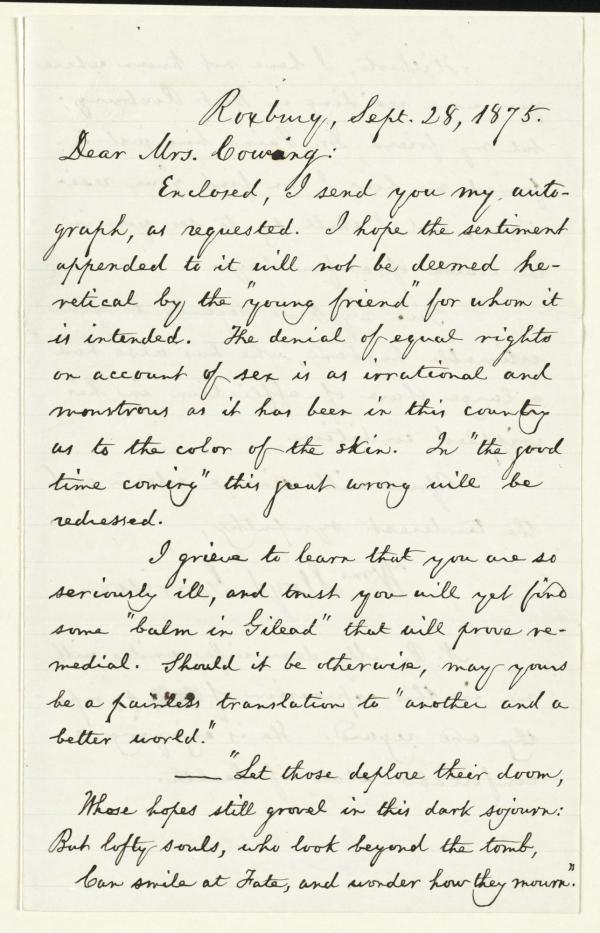 Roxbury, Sept. 28, 1875.
Dear Mrs. Cowing:
Enclosed, I send you my auto-
graph, as requested. I hope the sentiment
appended to it will not be deemed he-
retical by the "young friend" for whom it
is intended. The denial of equal rights
on account of sex is as irrational and
monstrous as it has been in this country
as to the color of the skin. In "the good
time coming" this great wrong will be
redressed.
I grieve to learn that you are so
seriously ill, and trust you will yet find
some "balm in Gilead" that will prove re-
medial. Should it be otherwise, may yours
be a painless translation to "another and a
better world."
— "Let those deplore their doom,
Whose hopes still grovel in this dark sojourn:
But lofty souls, who look beyond the tomb,
Can smile at Fate, and wonder how they mourn."